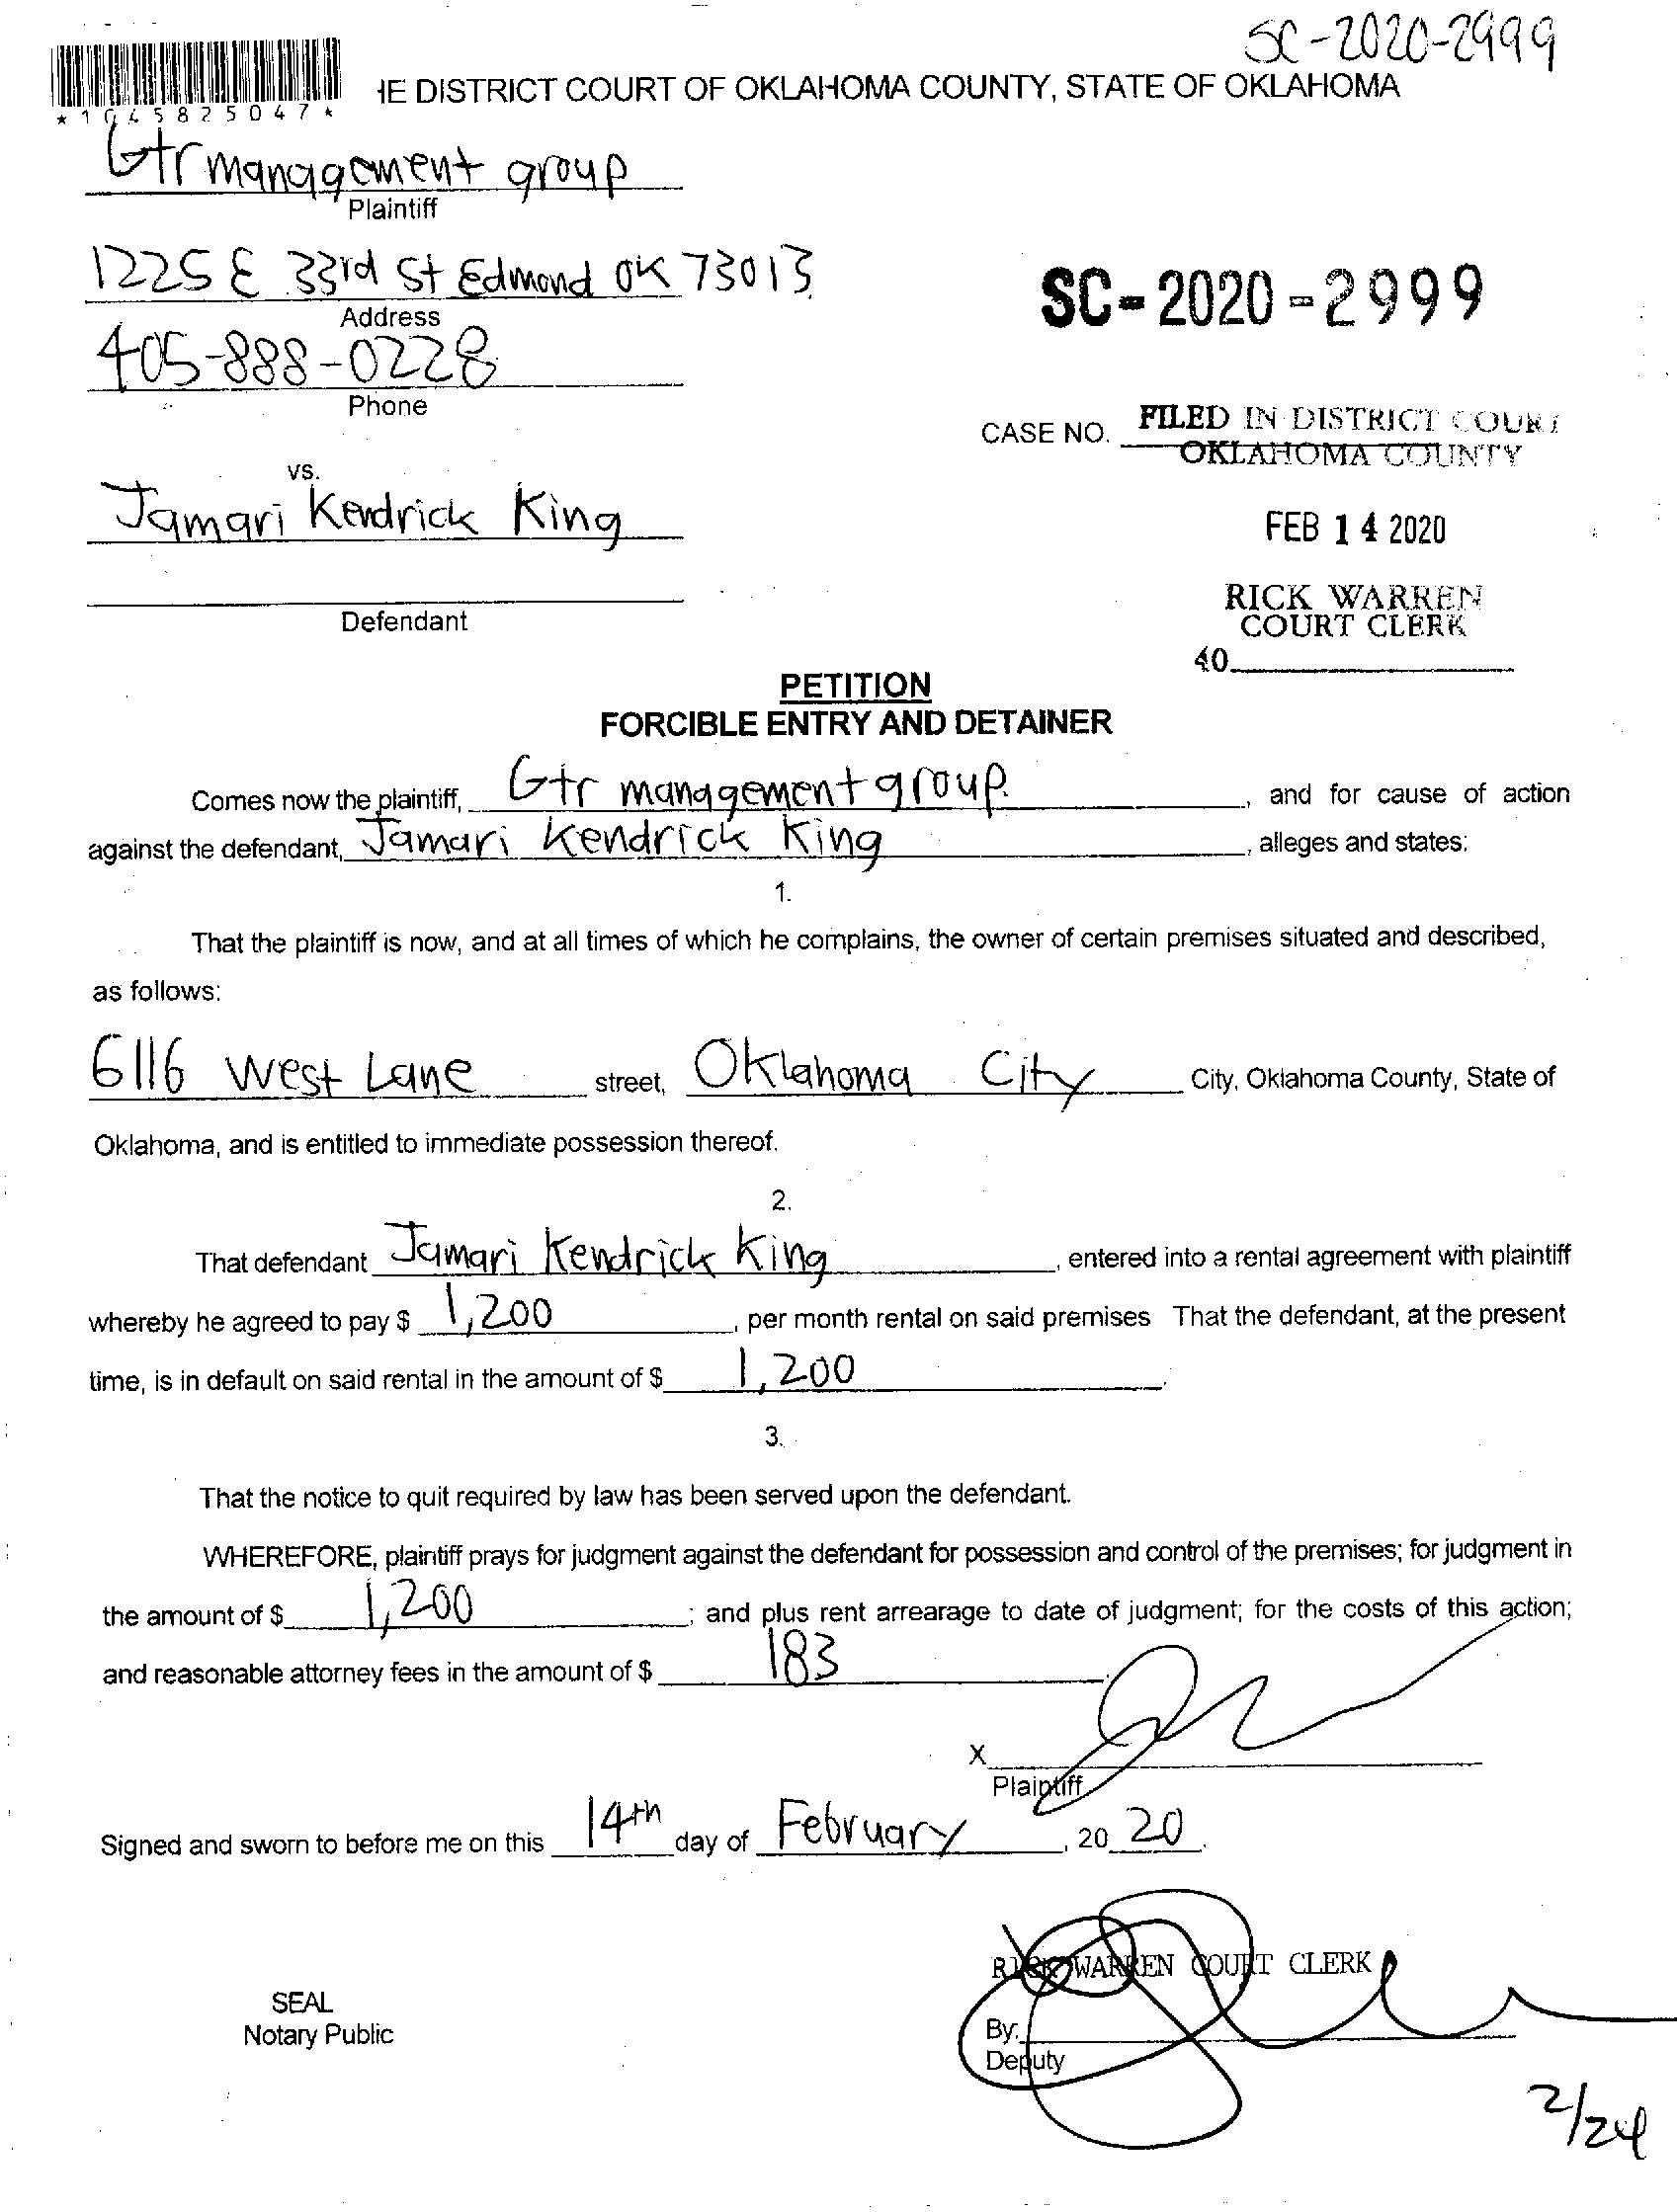 SC-2020-2999
IE DISTRICT COURT OF OKLAHOMA COUNTY, STATE OF OKLAHOMA
*1045825047*
Gtr management group
Plaintiff
1225 E 33rd St Edmond OK 73013
Address
405-888-0228
Phone
SC-2020-2999
CASE NO. FILED IN DISTRICT COURT
OKLAHOMA COUNTY
vs.
Jamari Kendrick King
FEB 14 2020
Defendant
RICK WARREN
COURT CLERK
40
PETITION
FORCIBLE ENTRY AND DETAINER
Comes now the plaintiff, Gtr management group, and for cause of action
against the defendant, Jamari Kendrick King, alleges and states:
1.
That the plaintiff is now, and at all times of which he complains, the owner of certain premises situated and described,
as follows:
6116 West Lane street, Oklahoma City City, Oklahoma County, State of
Oklahoma, and is entitled to immediate possession thereof.
2.
That defendant Jamari Kendrick King, entered into a rental agreement with plaintiff
whereby he agreed to pay $ 1,200, per month rental on said premises That the defendant, at the present
time, is in default on said rental in the amount of $ 1,200.
3.
That the notice to quit required by law has been served upon the defendant.
WHEREFORE, plaintiff prays for judgment against the defendant for possession and control of the premises; for judgment in
the amount of $ 1,200; and plus rent arrearage to date of judgment; for the costs of this action;
and reasonable attorney fees in the amount of $ 183.
X
Plaintiff
Signed and sworn to before me on this 14th day of February, 20 20.
RICK WARREN COURT CLERK
SEAL
Notary Public
By:
Deputy
2/24